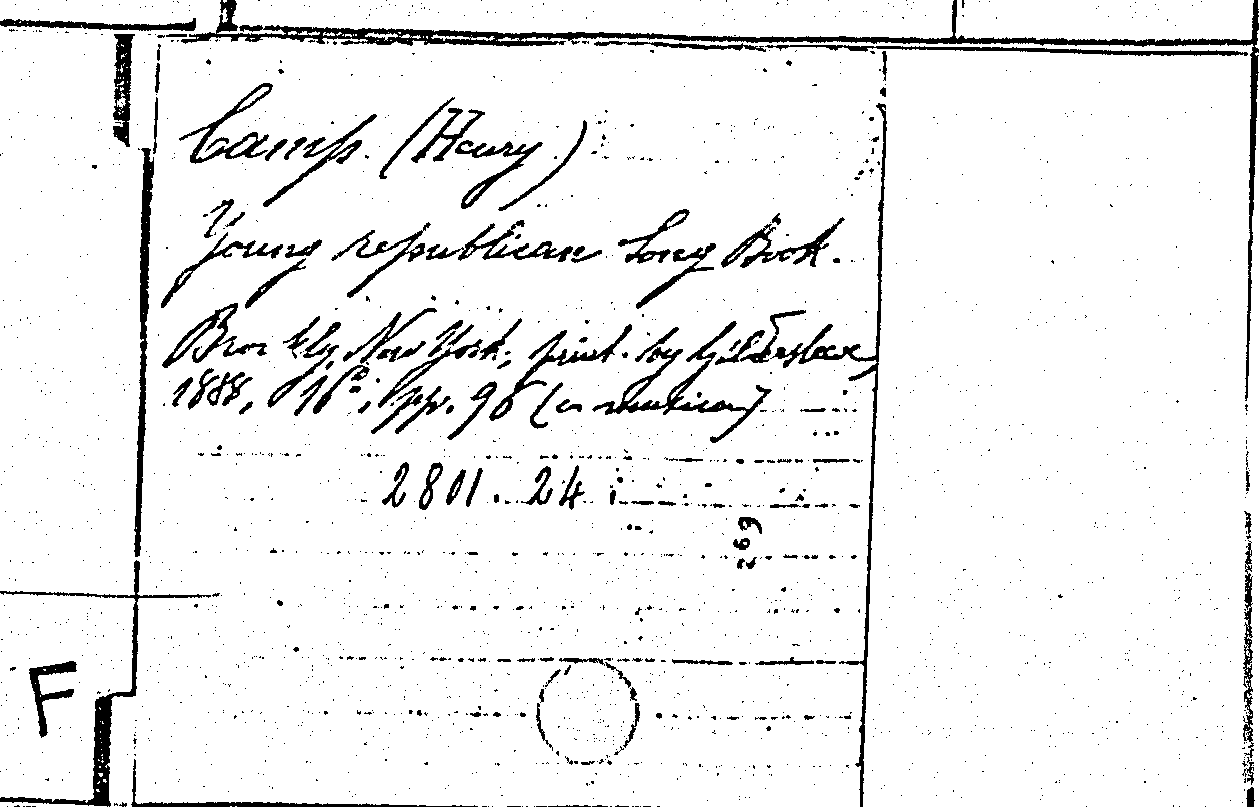 Camp. (Henry)
Young republican Song Book.
Brooklyn, New York, print. by Gildersleeve,
1888, 16°, pp. 96 (con musica)
2801. 24
269
F